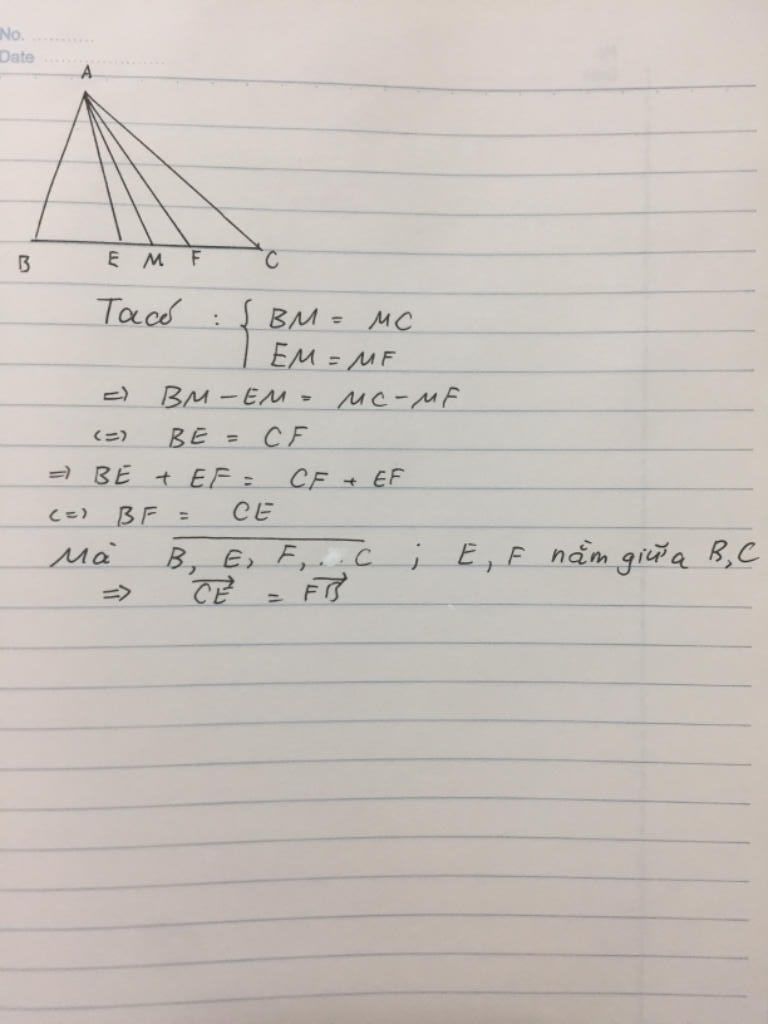 No. ...........
Date .....................
A
B E M F C
Ta có : { BM = MC
EM = MF
=> BM - EM = MC - MF
<=> BE = CF
=> BE + EF = CF + EF
<=> BF = CE
Mà B, E, F, .. C ; E, F nằm giữa B, C
=> CE = FB